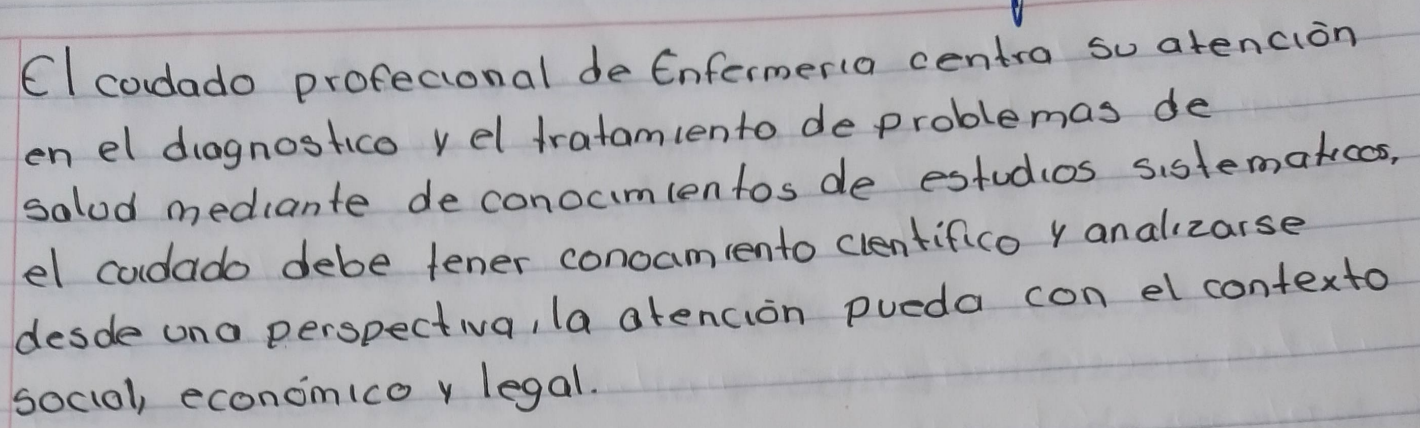 El cuidado profecional de Enfermeria centra su atención
en el diagnostico y el tratamiento de problemas de
salud mediante de conocimientos de estudios sistematicos,
el cuidado debe tener conocimiento cientifico y analizarse
desde una perspectiva, la atención pueda con el contexto
social, económico y legal.